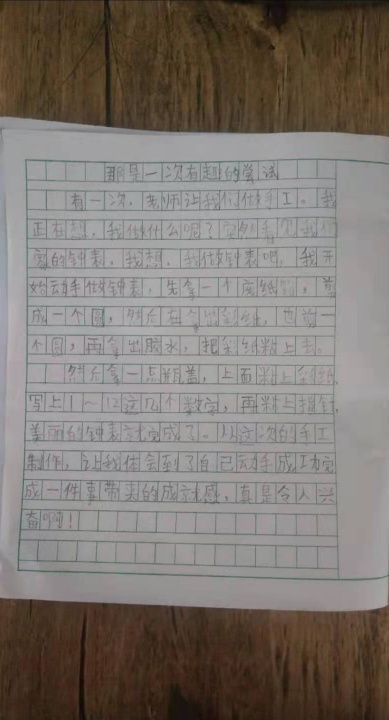 那是一次有趣的尝试
有一次,老师让我们做手工。我
正在想,我做什么呢?突然看见我们
家的钟表,我想,我做钟表吧。我开
始动手做钟表,先拿一个废纸,剪
成一个圆,然后在拿出彩纸,也剪一
个圆,再拿出胶水,把彩纸粘上去。
然后拿一点瓶盖,上面粘上彩纸,
写上1~12这几个数字,再粘上指针,
美丽的钟表就完成了。从这次的手工
制作,让我体会到了自己动手成功完
成一件事带来的成就感,真是令人兴
奋啊!